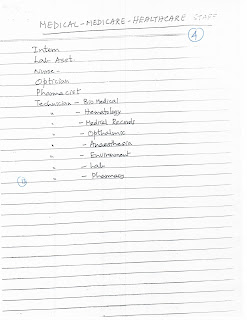 MEDICAL-MEDICARE-HEALTHCARE STAFF
4
Intern
Lab Asst.
Nurse -
Optician
Pharmacist
Technician - Bio Medical
" - Hematology
" - Medical Records
" - Opthalmic
" - Anaesthesia
" - Environment
" - Lab
" - Pharmacy